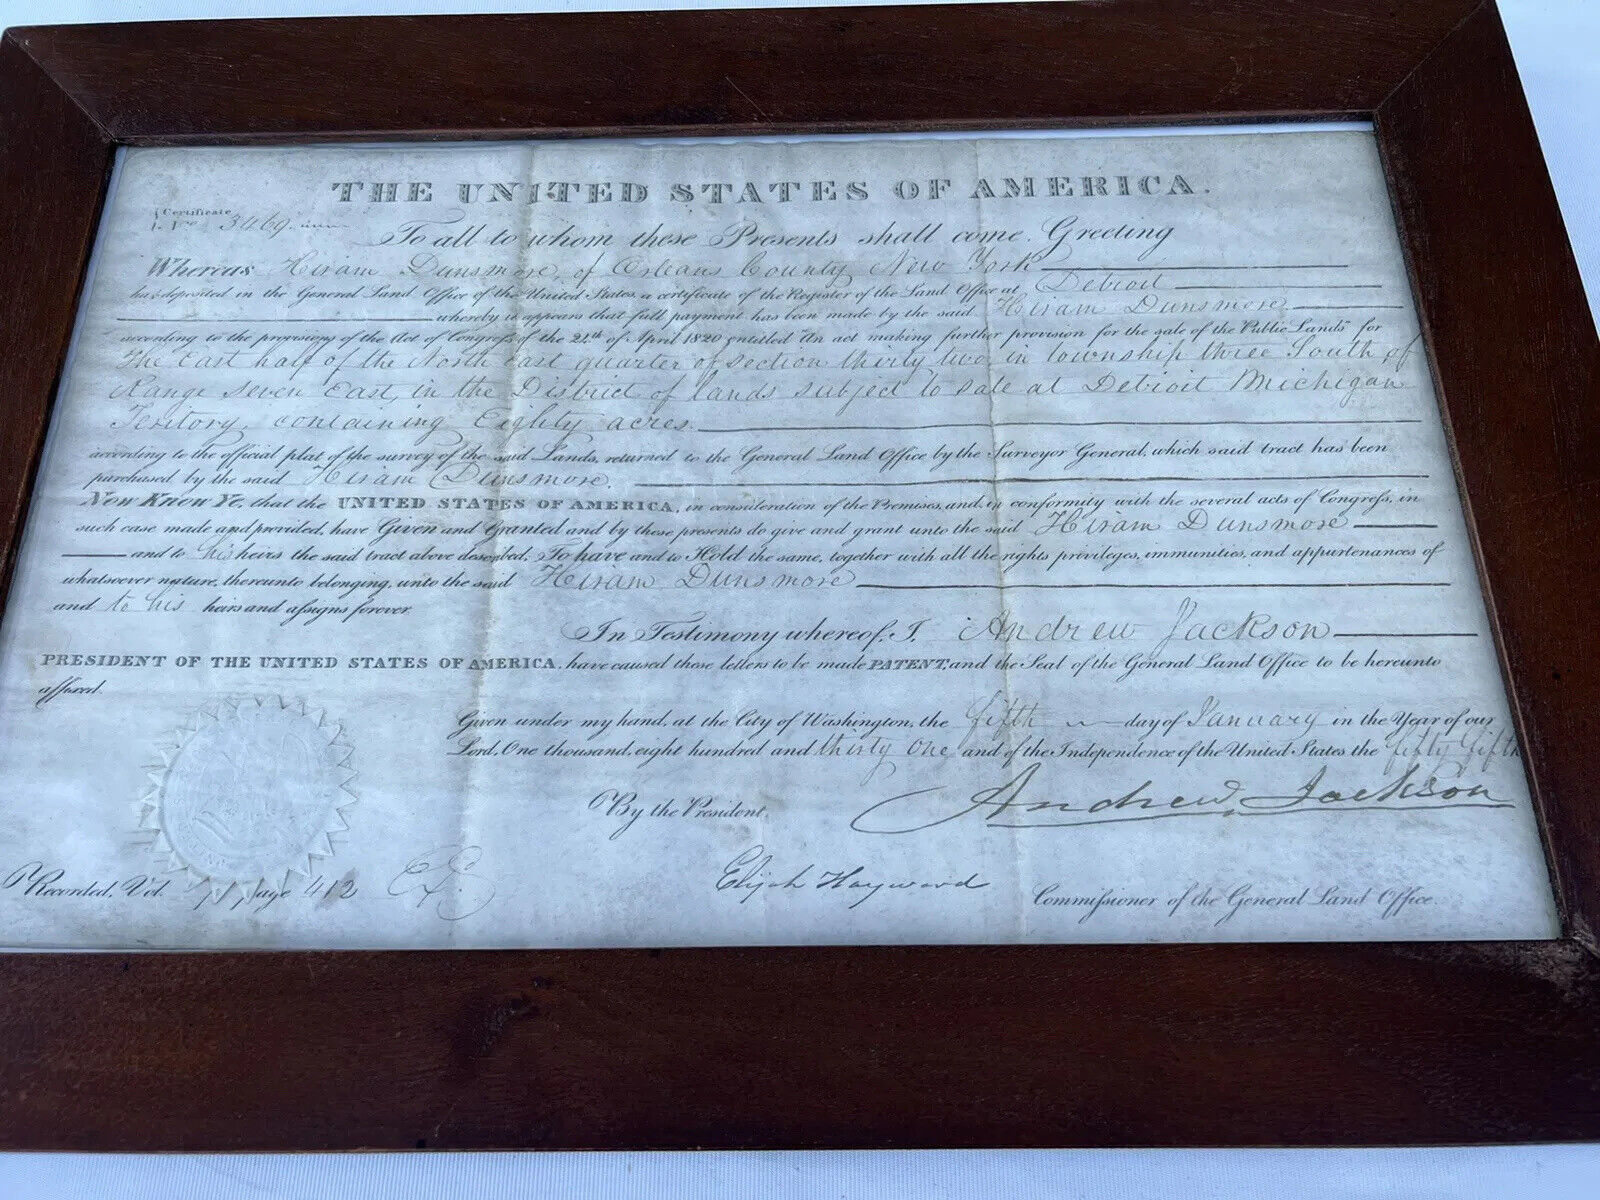 THE UNITED STATES OF AMERICA.
Certificate
No. 3469
To all to whom these Presents shall come, Greeting
Whereas Hiram Dunsmore, of Orleans County New York
has deposited in the General Land Office of the United States, a certificate of the Register of the Land Office at Detroit
whereby it appears that full payment has been made by the said Hiram Dunsmore
according to the provisions of the Act of Congress of the 24th of April 1820 entitled "An act making further provision for the sale of the Public Lands" for
The East half of the North East quarter of section thirty two in township three South of
Range seven East, in the District of lands subject to sale at Detroit Michigan
Teritory, containing Eighty acres.
according to the official plat of the survey of the said Lands, returned to the General Land Office by the Surveyor General, which said tract has been
purchased by the said Hiram Dunsmore.
Now Know Ye, that the UNITED STATES OF AMERICA, in consideration of the Premises, and in conformity with the several acts of Congress, in
such case made and provided, have Given and Granted and by these presents do give and grant unto the said Hiram Dunsmore
and to his heirs the said tract above described, To have and to Hold the same, together with all the rights privileges, immunities, and appurtenances of
whatsoever nature, thereunto belonging, unto the said Hiram Dunsmore
and to his heirs and assigns forever.
In Testimony whereof, I, Andrew Jackson
PRESIDENT OF THE UNITED STATES OF AMERICA, have caused these letters to be made PATENT and the Seal of the General Land Office to be hereunto
affixed.
Given under my hand, at the City of Washington, the fifth day of January in the Year of our
Lord, One thousand, eight hundred and thirty one and of the Independence of the United States the fifty fifth
By the President. Andrew Jackson
Elijah Hayward
Commissioner of the General Land Office.
Recorded, Vol. page 412